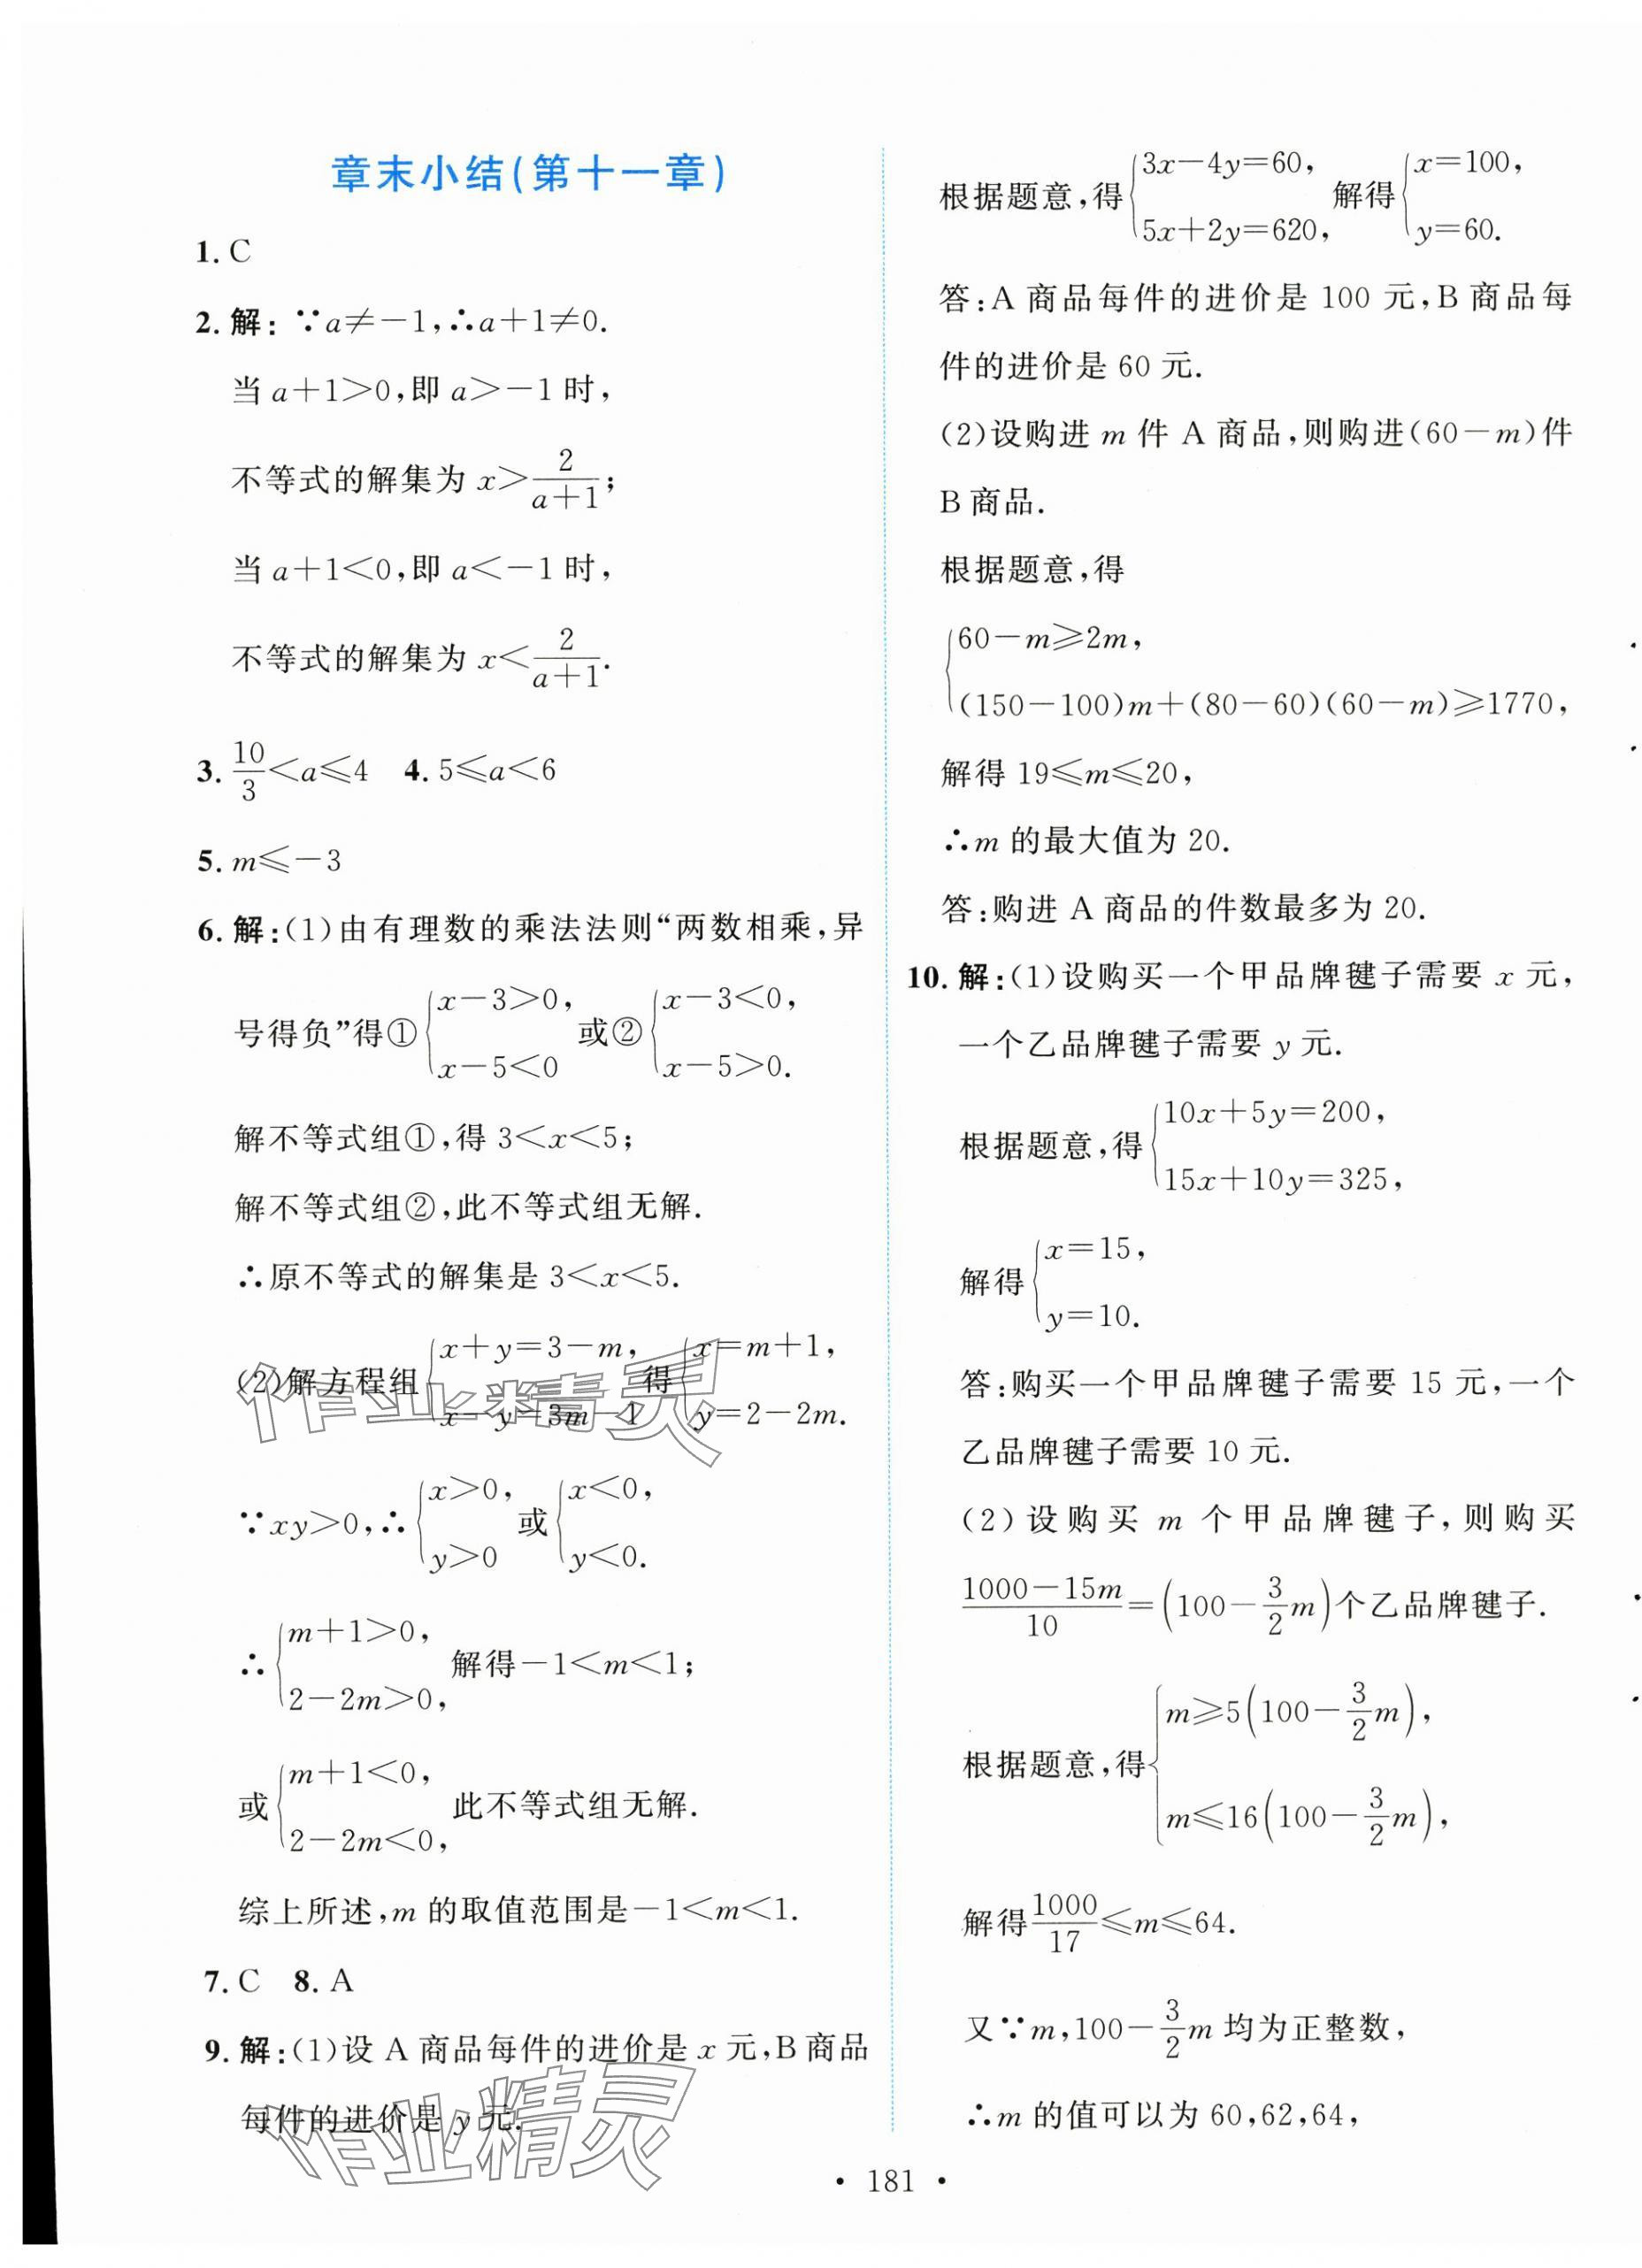 章末小结(第十一章)
1. C
2. 解：∵a≠－1,∴a＋1≠0.
当 a＋1＞0,即 a＞－1 时,
不等式的解集为 x＞2/(a＋1);
当 a＋1＜0,即 a＜－1 时,
不等式的解集为 x＜2/(a＋1).
3. 10/3＜a≤4　4. 5≤a＜6
5. m≤－3
6. 解：(1)由有理数的乘法法则“两数相乘,异
号得负”得①{x－3＞0, x－5＜0 或②{x－3＜0, x－5＞0.
解不等式组①,得 3＜x＜5;
解不等式组②,此不等式组无解.
∴原不等式的解集是 3＜x＜5.
(2)解方程组{x＋y＝3－m, x－y＝3m－1 得{x＝m＋1, y＝2－2m.
∵xy＞0,∴{x＞0, y＞0 或{x＜0, y＜0.
∴{m＋1＞0, 2－2m＞0, 解得－1＜m＜1;
或{m＋1＜0, 2－2m＜0, 此不等式组无解.
综上所述,m 的取值范围是－1＜m＜1.
7. C　8. A
9. 解：(1)设 A 商品每件的进价是 x 元,B 商品
每件的进价是 y 元.
根据题意,得{3x－4y＝60, 5x＋2y＝620, 解得{x＝100, y＝60.
答：A 商品每件的进价是 100 元,B 商品每
件的进价是 60 元.
(2)设购进 m 件 A 商品,则购进(60－m)件
B 商品.
根据题意,得
{60－m≥2m,
(150－100)m＋(80－60)(60－m)≥1770,
解得 19≤m≤20,
∴m 的最大值为 20.
答：购进 A 商品的件数最多为 20.
10. 解：(1)设购买一个甲品牌毽子需要 x 元,
一个乙品牌毽子需要 y 元.
根据题意,得{10x＋5y＝200, 15x＋10y＝325,
解得{x＝15, y＝10.
答：购买一个甲品牌毽子需要 15 元,一个
乙品牌毽子需要 10 元.
(2)设购买 m 个甲品牌毽子,则购买
(1000－15m)/10＝(100－3/2m)个乙品牌毽子.
根据题意,得{m≥5(100－3/2m), m≤16(100－3/2m),
解得1000/17≤m≤64.
又∵m,100－3/2m 均为正整数,
∴m 的值可以为 60,62,64,
• 181 •
作业精灵
作业精灵